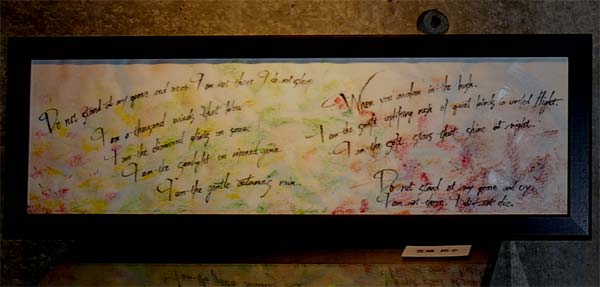 Do not stand at my grave and weep I am not there I do not sleep.
I am a thousand winds that blow
I am the diamond glints on snow.
I am the sunlight on ripened grain.
I am the gentle autumn's rain.
When you awaken in the hush.
I am the swift uplifting rush of quiet birds in circled flight.
I am the soft stars that shine at night.
Do not stand at my grave and cry.
I am not there. I did not die.